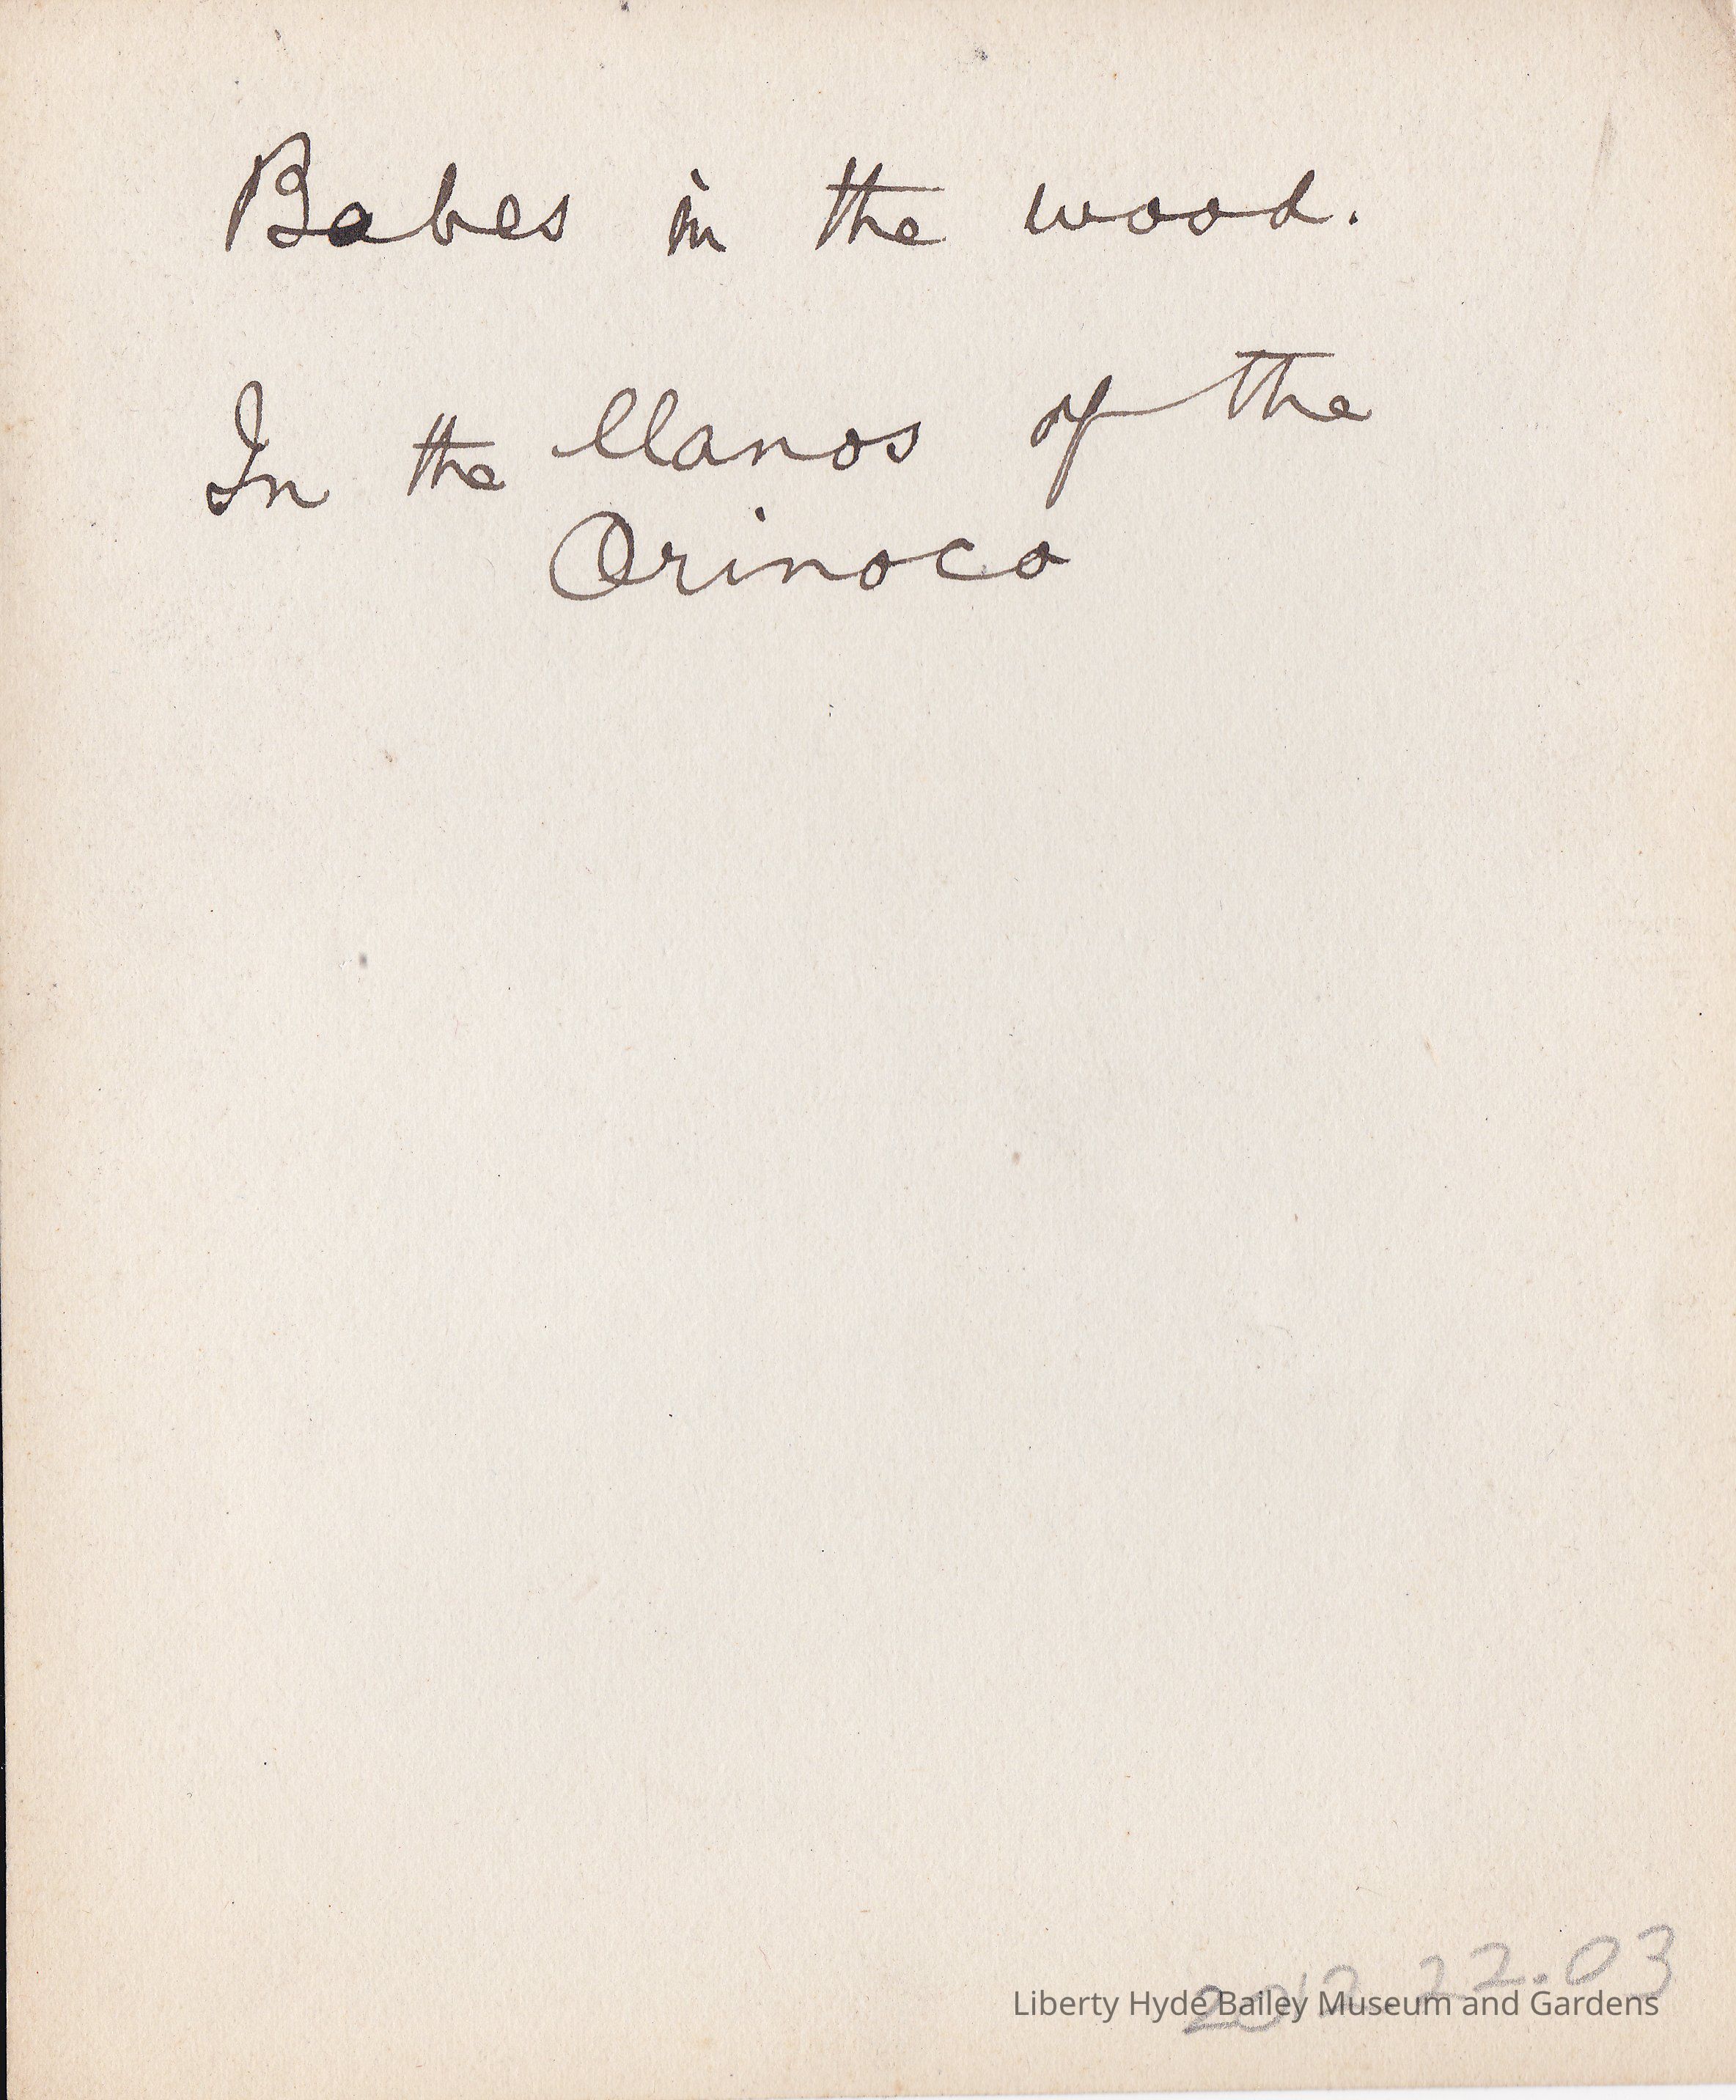 Babes in the wood.
In the llanos of the
Orinoco
2012 22.03
Liberty Hyde Bailey Museum and Gardens